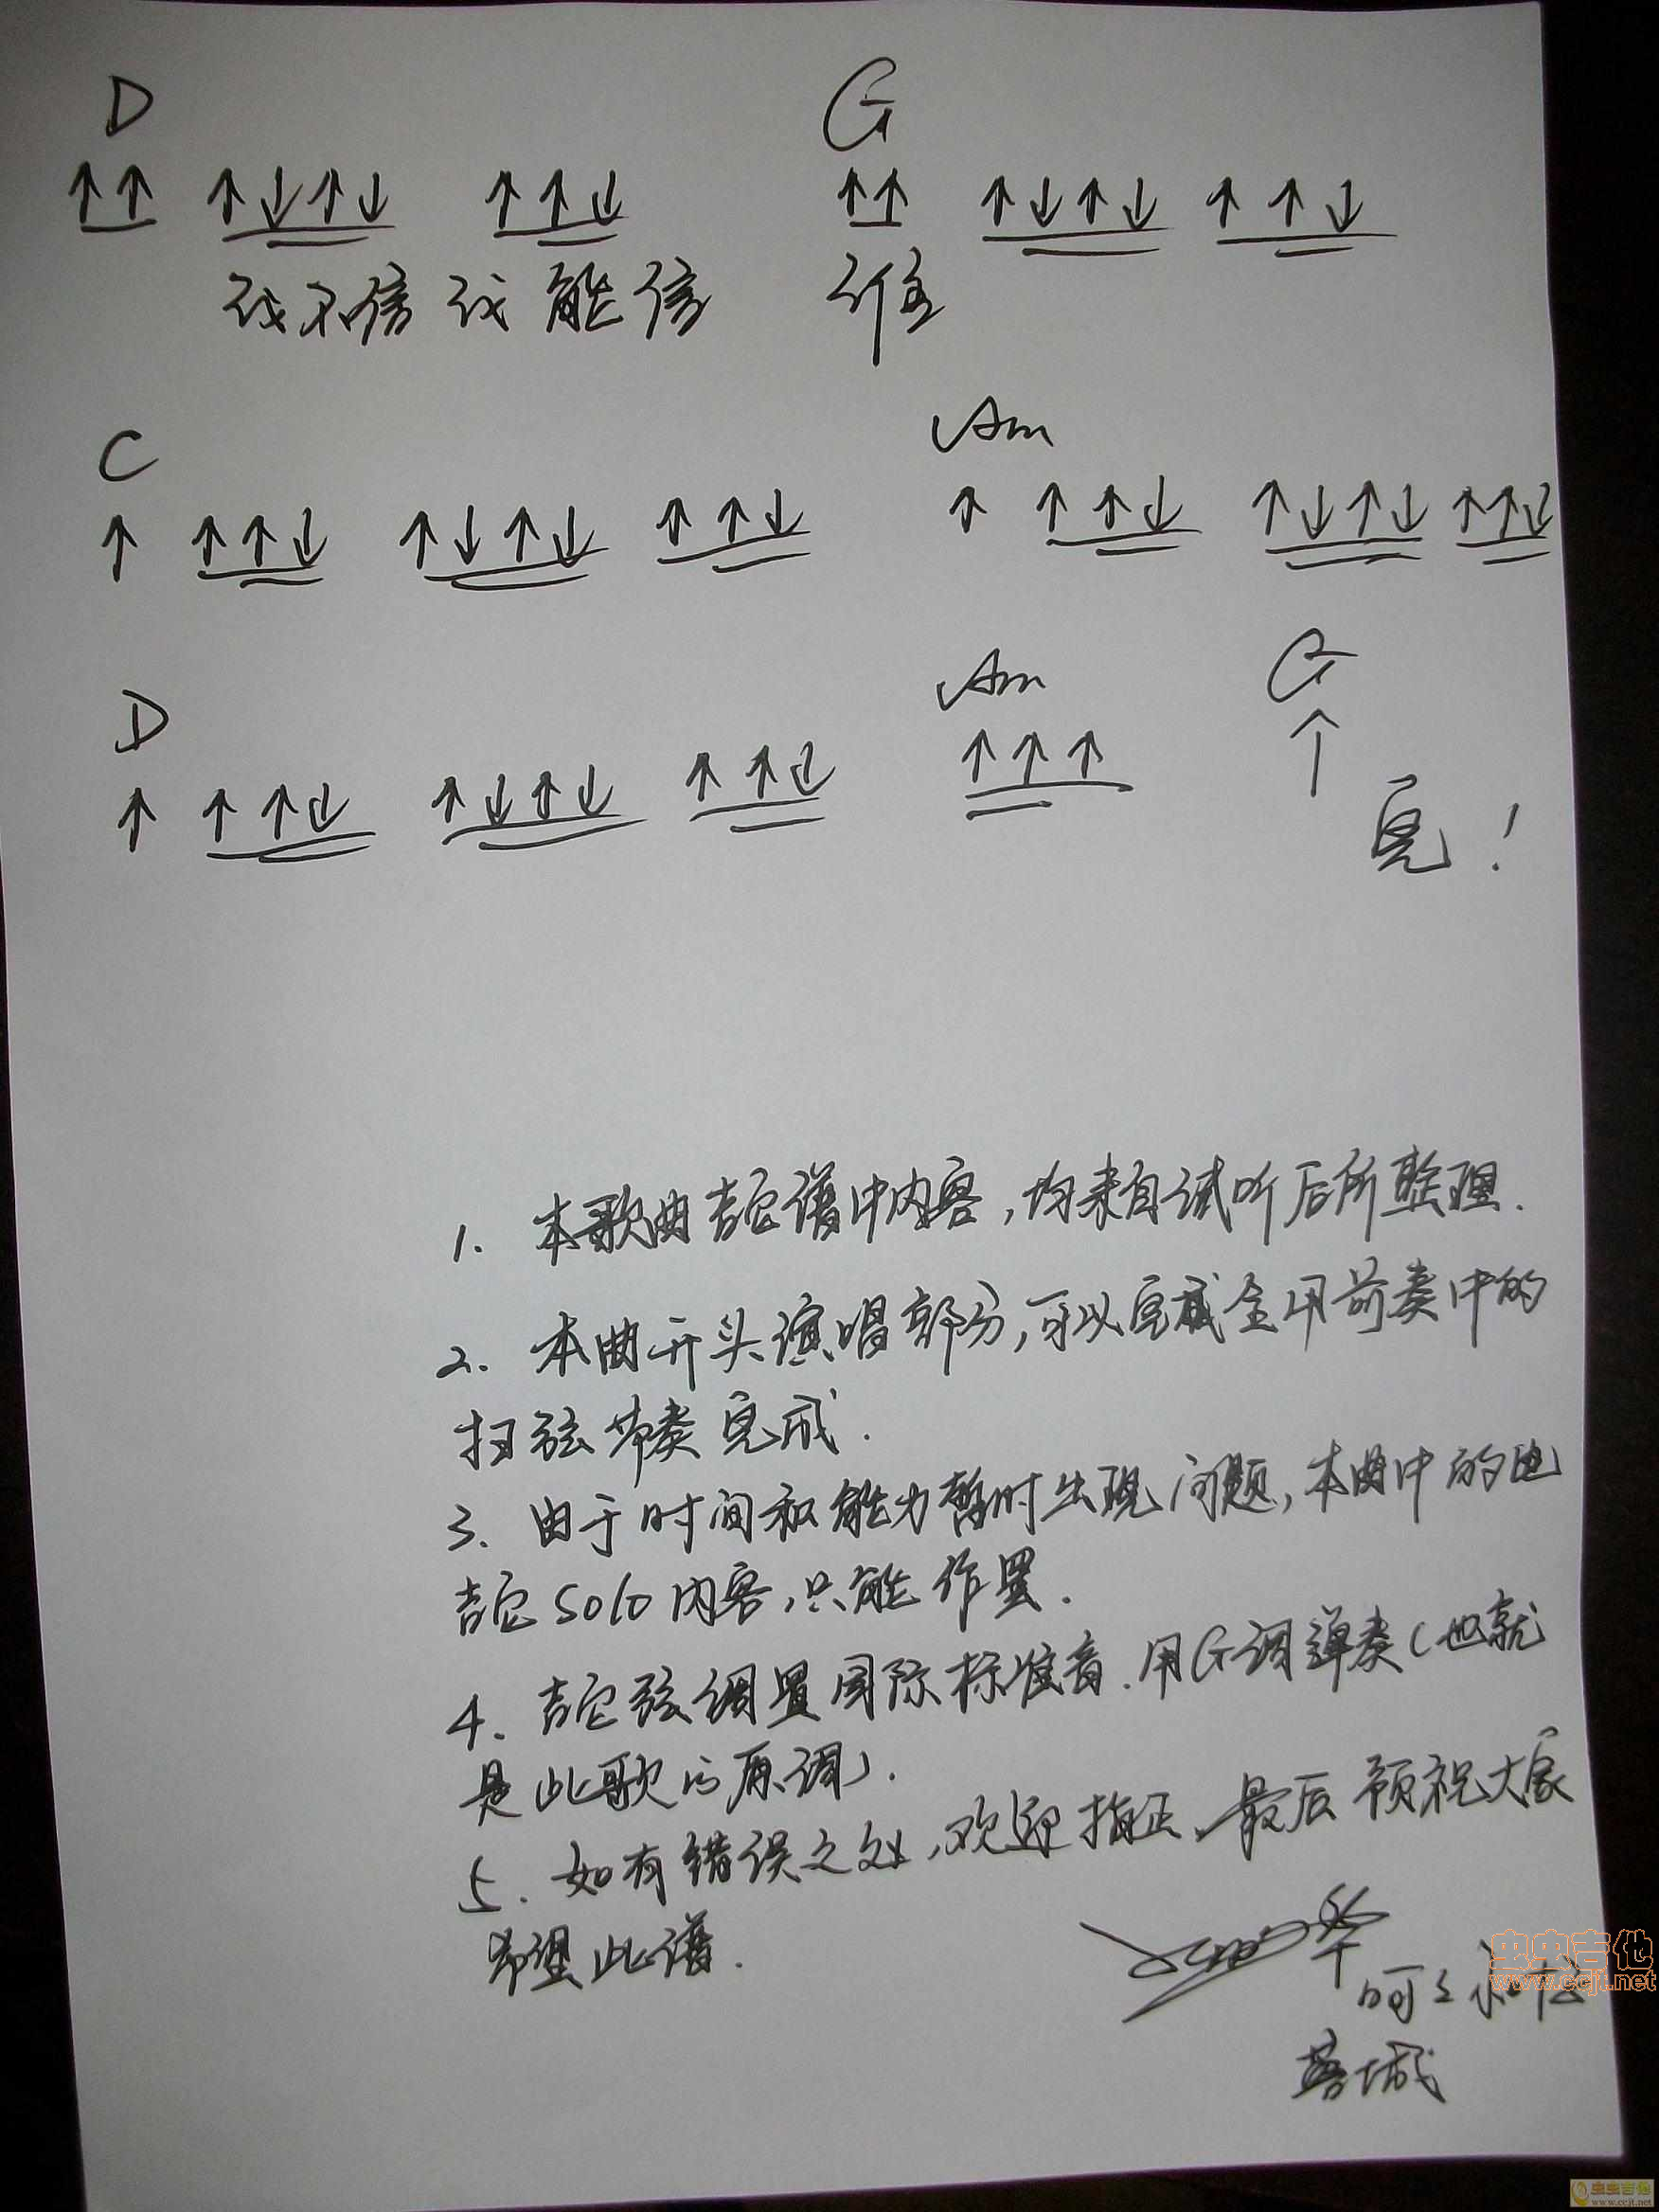 D G
↑↑ ↑↓↑↓ ↑↑↓ ↑↑ ↑↓↑↓ ↑↑↓
我不信我能信 谁
C Am
↑ ↑↑↓ ↑↓↑↓ ↑↑↓ ↑ ↑↑↓ ↑↓↑↓ ↑↑↓
D Am G
↑ ↑↑↓ ↑↓↑↓ ↑↑↓ ↑↑↑ ↑
完！
1. 本歌曲吉它谱中内容，均来自试听后所整理.
2. 本曲开头演唱部分，可以完成全用前奏中的
扫弦节奏完成.
3. 由于时间和能力暂时出现问题，本曲中的电
吉它solo内容，只能作罢.
4. 吉它弦调置国际标准音.用G调弹奏（也就
是此歌的原调）.
5. 如有错误之处，欢迎指正、最后预祝大家
希望此谱.
华
蓉城
虫虫吉他
www.ccjt.net
虫虫吉他
www.ccjt.net